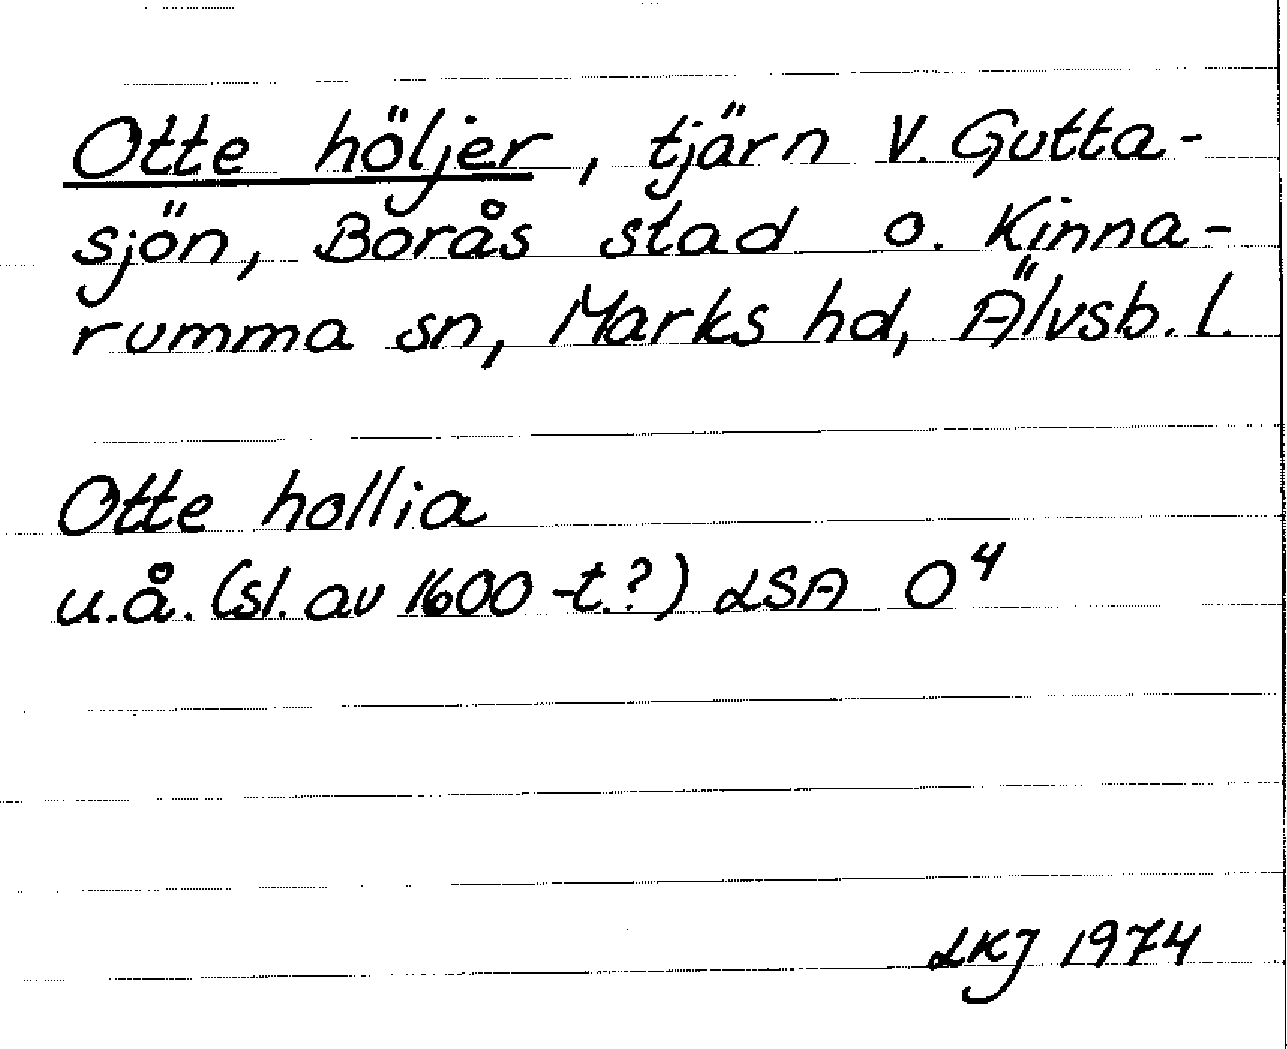 Otte höljer, tjärn V. Gutta-
sjön, Borås stad o. Kinna-
rumma sn, Marks hd, Älvsb. l.
Otte hollia
u.å. (sl. av 1600-t.?) LSA O⁴
LKJ 1974